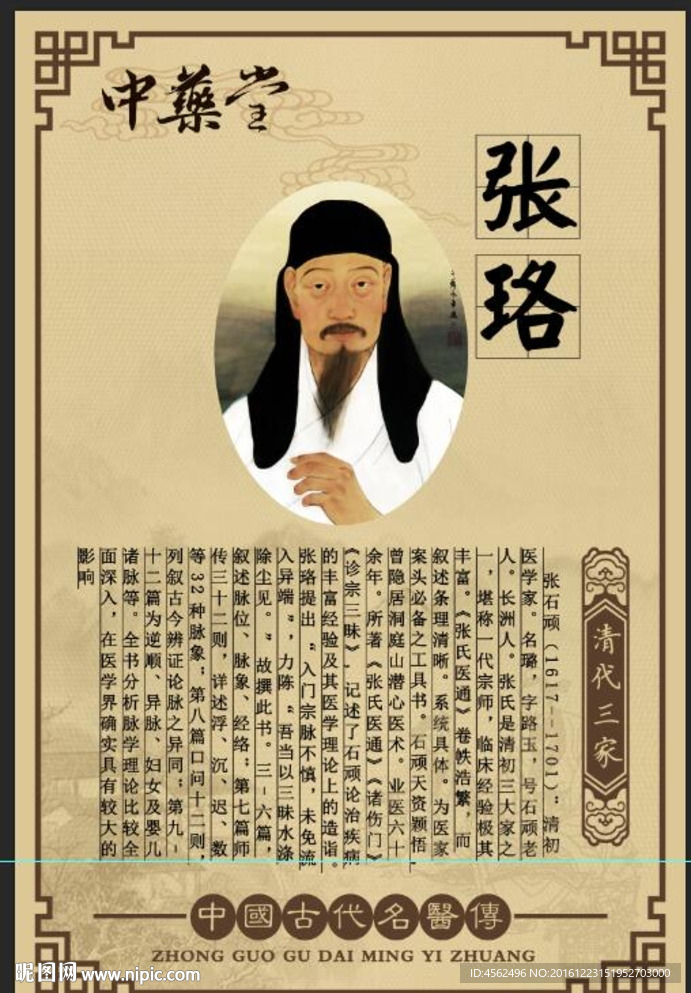 中藥堂
张珞
清代三家
张石顽（1617--1701）"清初
医学家。名璐，字路玉，号石顽老
人。长洲人。张氏是清初三大家之
一，堪称一代宗师，临床经验极其
丰富。《张氏医通》卷帙浩繁，而
叙述条理清晰。系统具体。为医家
案头必备之工具书。石顽天资颖悟
曾隐居洞庭山潜心医术。业医六十
余年。所著《张氏医通》《诸伤门》
《诊宗三昧》. 记述了石顽论治疾病
的丰富经验及其医学理论上的造诣。
张珞提出 "入门宗脉不慎，未免流
入异端"，力陈 "吾当以三昧水涤
除尘见。" 故撰此书。三-六篇，
叙述脉位、脉象、经络；第七篇师
传三十二则，详述浮、沉、迟、数
等32种脉象；第八篇口问十二则，
列叙古今辨证论脉之异同；第九-
十二篇为逆顺、异脉、妇女及婴儿
诸脉等。全书分析脉学理论比较全
面深入，在医学界确实具有较大的
影响
中國古代名醫傳
ZHONG GUO GU DAI MING YI ZHUANG
昵图网 www.nipic.com
ID:4562496 NO:20161223151952703000